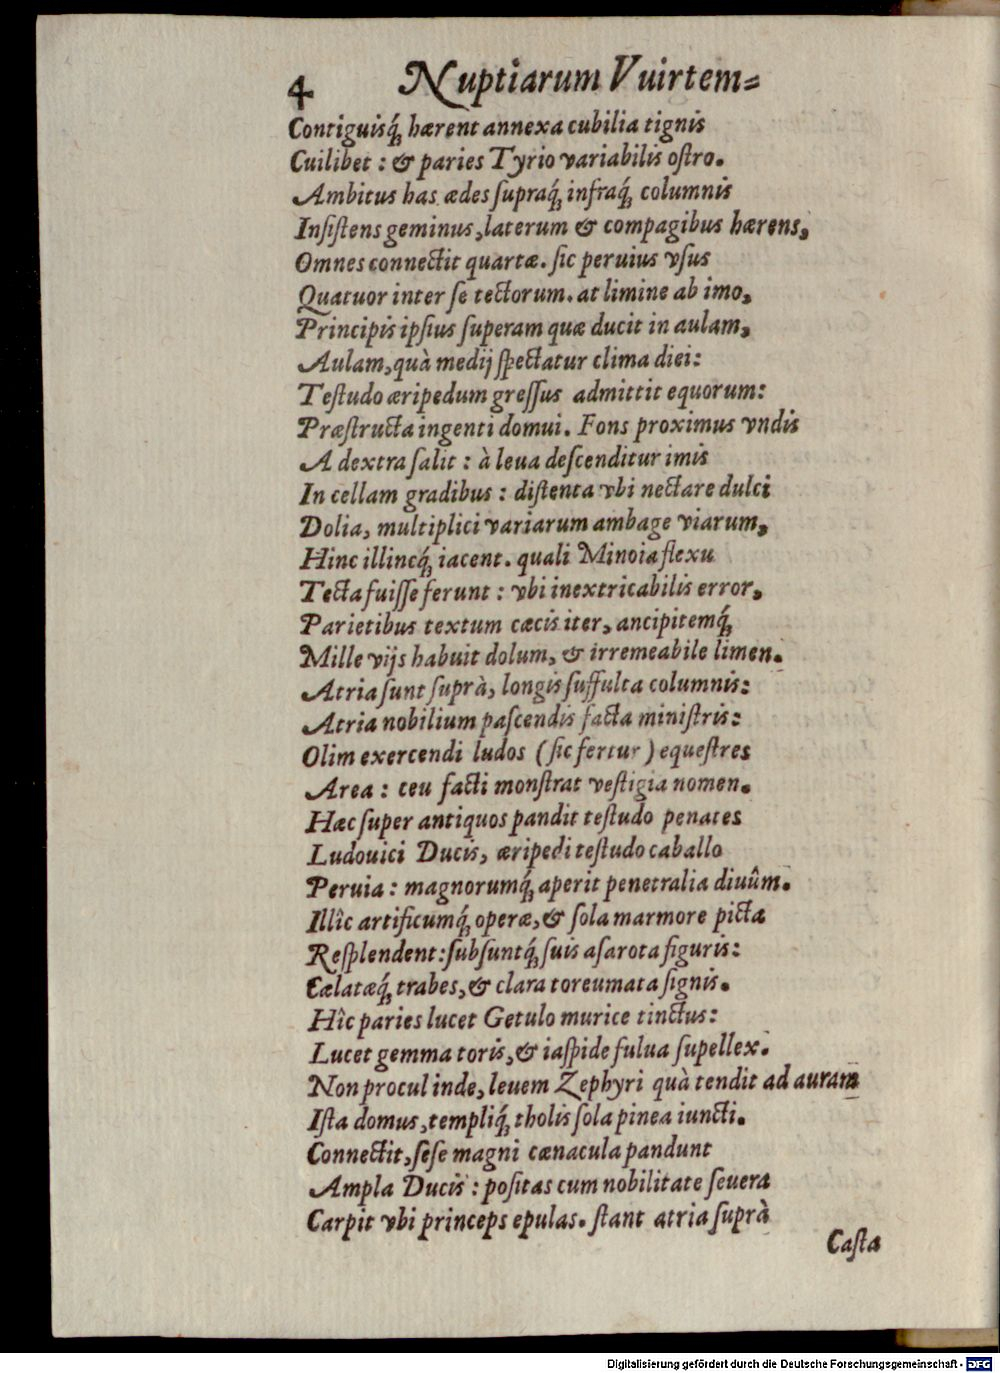 4 Nuptiarum Vuirtem⸗
Contiguisq́ꝫ hærent annexa cubilia tignis
Cuilibet : & paries Tyrio variabilis oſtro.
Ambitus has ædes ſupraq́ꝫ infraq́ꝫ columnis
Inſiſtens geminus, laterum & compagibus hærens,
Omnes connectit quartæ. ſic peruius vſus
Quatuor inter ſe tectorum. at limine ab imo,
Principis ipſius ſuperam quæ ducit in aulam,
Aulam, quà medij ſpectatur clima diei:
Teſtudo æripedum greſſus admittit equorum:
Præſtructa ingenti domui. Fons proximus vndis
A dextra ſalit : à leua deſcenditur imis
In cellam gradibus : diſtenta vbi nectare dulci
Dolia, multiplici variarum ambage viarum,
Hinc illincq́ꝫ iacent. quali Minoia flexu
Tecta fuiſſe ferunt : vbi inextricabilis error,
Parietibus textum cæcis iter, ancipitemq́ꝫ
Mille vijs habuit dolum, & irremeabile limen.
Atria ſunt ſuprà, longis ſuffulta columnis:
Atria nobilium paſcendis facta miniſtris:
Olim exercendi ludos (ſic fertur) equeſtres
Area : ceu facti monſtrat veſtigia nomen.
Hæc ſuper antiquos pandit teſtudo penates
Ludouici Ducis, æripedi teſtudo caballo
Peruia : magnorumq́ꝫ aperit penetralia diuûm.
Illîc artificumq́ꝫ operæ, & ſola marmore picta
Reſplendent: ſubſuntq́ꝫ ſuis aſarota figuris:
Cælatæq́ꝫ trabes, & clara toreumata ſignis.
Hîc paries lucet Getulo murice tinctus:
Lucet gemma toris, & iaſpide fulua ſupellex.
Non procul inde, leuem Zephyri quà tendit ad auram
Iſta domus, templiq́ꝫ tholis ſola pinea iuncti.
Connectit, ſeſe magni cænacula pandunt
Ampla Ducis : poſitas cum nobilitate ſeuera
Carpit vbi princeps epulas. ſtant atria ſuprà
Caſta
Digitalisierung gefördert durch die Deutsche Forschungsgemeinschaft - DFG